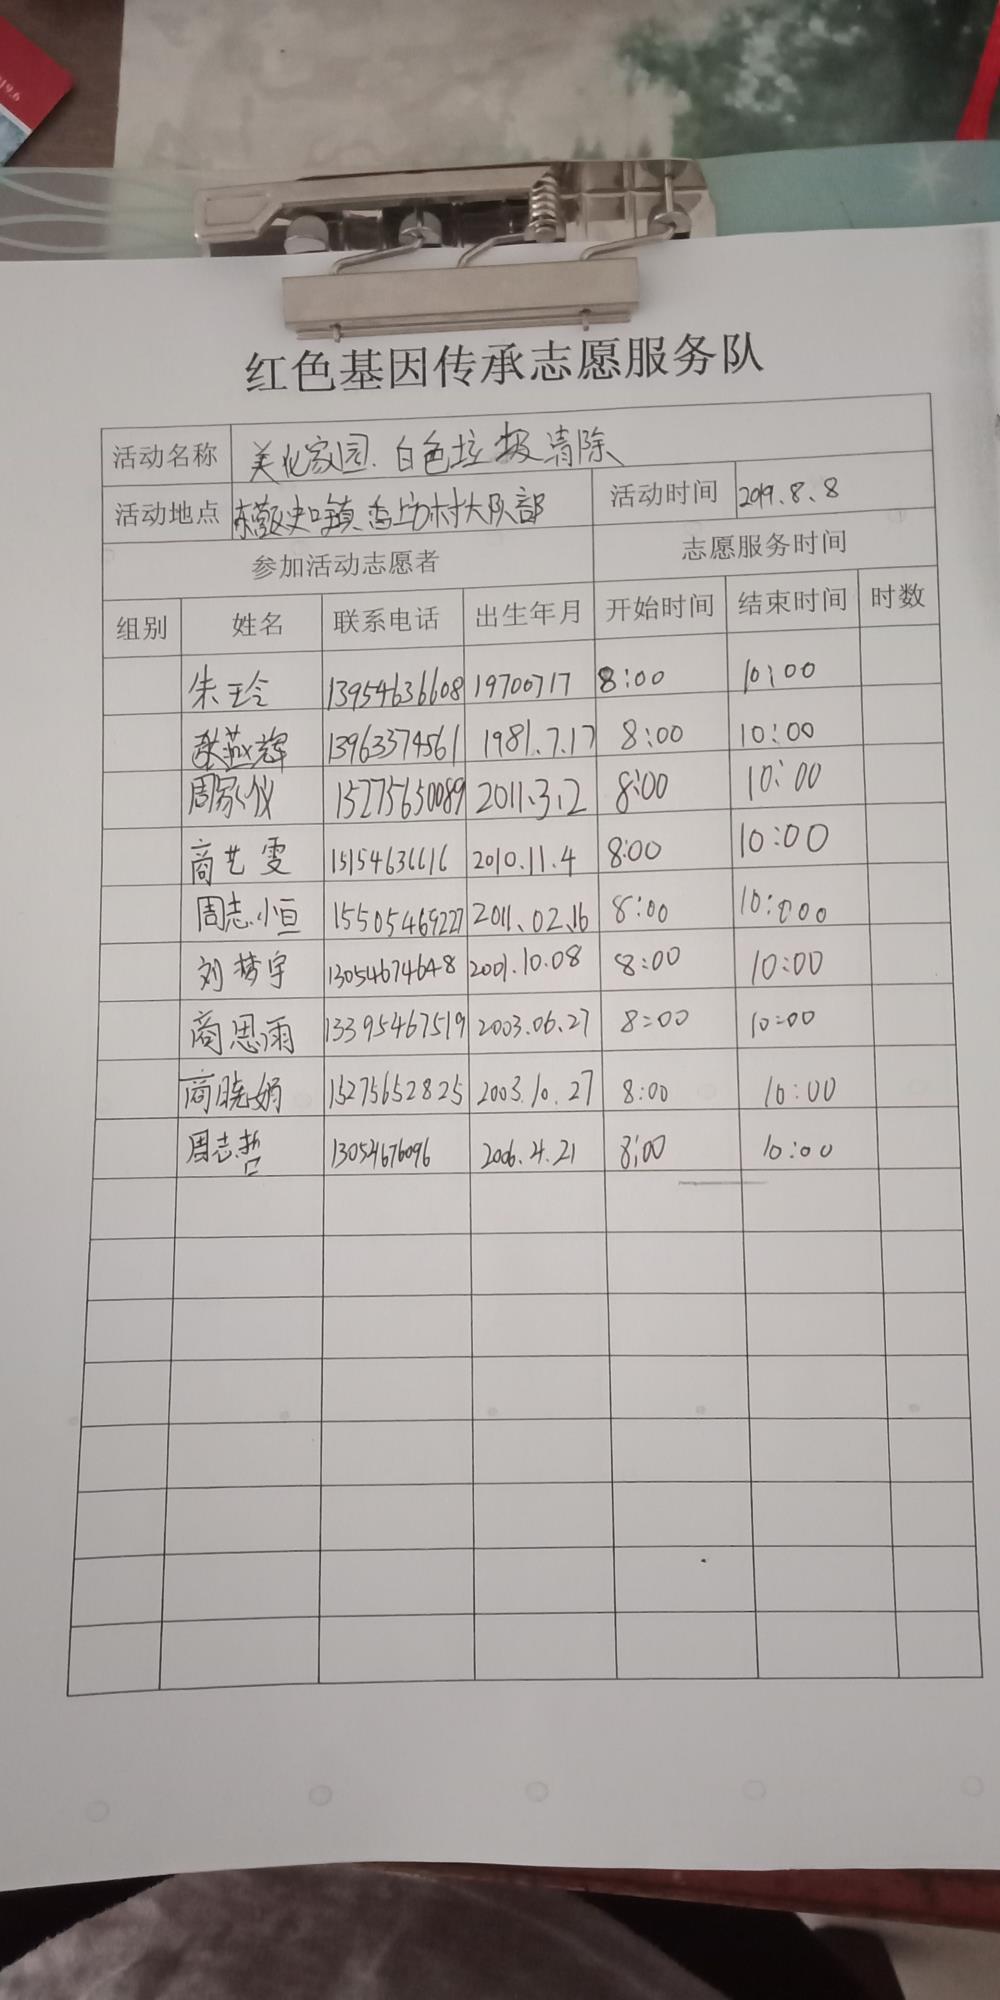 红色基因传承志愿服务队
活动名称 美化家园.白色垃圾清除
活动地点 史口镇 村大队部 活动时间 2019.8.8
参加活动志愿者 志愿服务时间
组别 姓名 联系电话 出生年月 开始时间 结束时间 时数
朱玉令 13954636608 19700717 8:00 10:00
张燕辉 13963374561 1981.7.17 8:00 10:00
周家仪 15275650089 2011.3.2 8:00 10:00
商艺雯 15154636616 2010.11.4 8:00 10:00
周志恒 15505469227 2011.02.16 8:00 10:000
刘梦宇 13054674648 2001.10.08 8:00 10:00
商思雨 13395467519 2003.06.27 8:00 10:00
商晓娟 15275652825 2003.10.27 8:00 10:00
周志哲 13054676096 2006.4.21 8:00 10:00